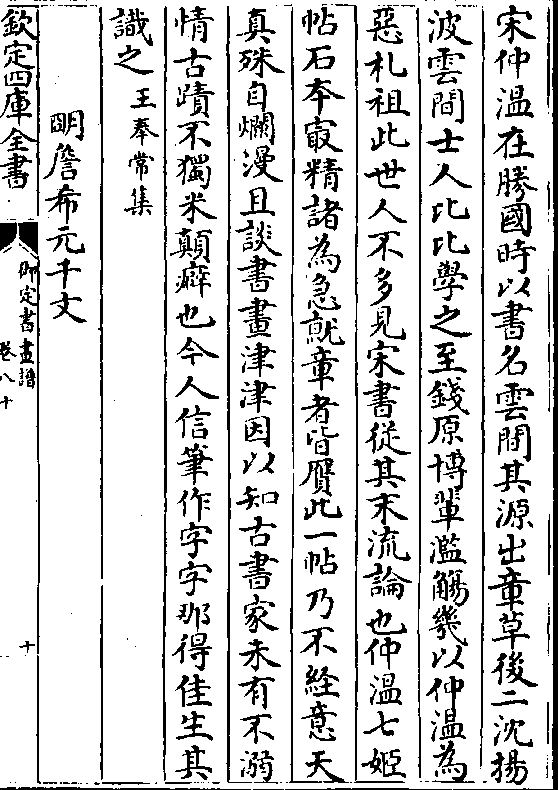 宋仲溫在勝國時以書名雲間其源出章草後二沈揚
波雲間士人比比學之至錢原博輩濫觴幾以仲溫為
惡札祖此世人不多見宋書從其末流論也仲溫七姬
帖石本㝡精諸為急就章者皆贋此一帖乃不經意天
真殊自爛漫且談書畫津津因以知古書家未有不溺
情古蹟不獨米顛癖也今人信筆作字字那得佳生其
識之王奉常集
明詹希元千文
欽定四庫全書
御定書畫譜
卷八十
十